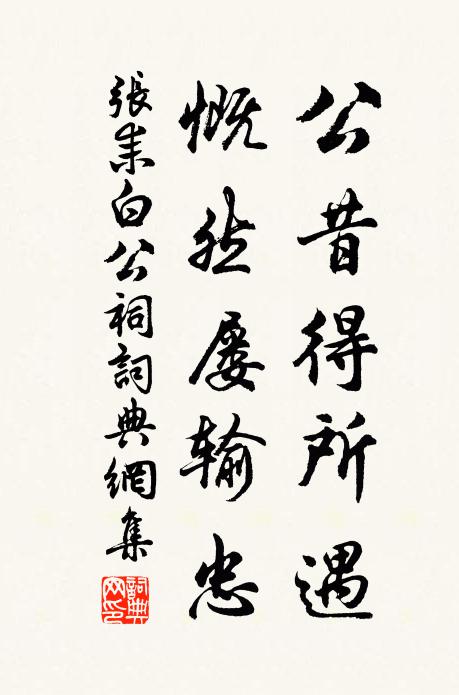 公昔得所遇
慨然屡输忠
張耒白公祠詞典網集
詞典網印